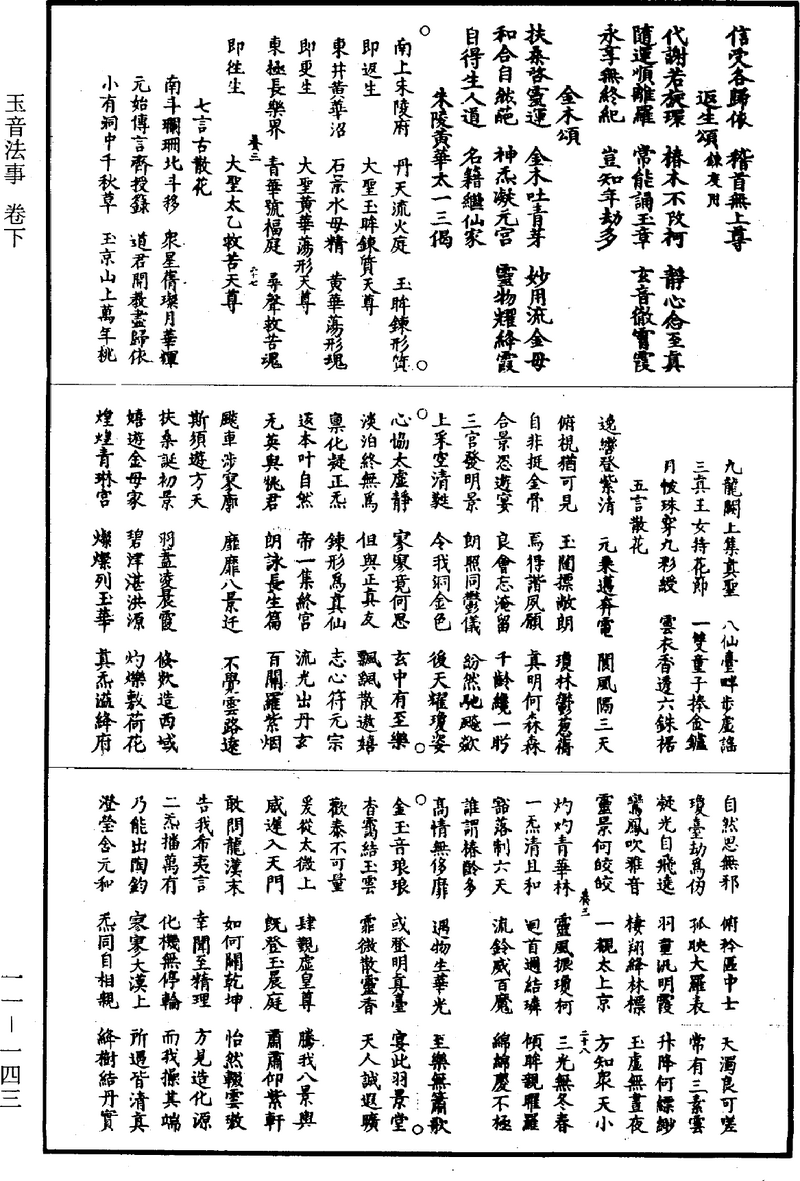 信受各歸依　稽首無上尊
返生頌鍊度用
代謝若旋環　椿木不改柯　靜心念至真
隨運順離羅　常能誦玉章　玄音徹霄霞
永享無終紀　豈知年劫多
金木頌
扶桑啓靈運　金木吐青芽　妙用流金母
和合自然葩　神炁凝元宮　靈物耀絳霞
自得生人道　名籍繼仙家
朱陵黃華太一三偈
南上朱陵府　丹天流火庭　玉眸鍊形質
即返生　大聖玉眸鍊質天尊
東井黃華沼　石景水母精　黃華蕩形魂
即更生　大聖黃華蕩形天尊
東極長樂界　青華號楅庭　尋聲救苦魂
即徃生　大聖太乙救苦天尊
卷三　二十七
七言古散花
南斗斕珊北斗移　衆星齊璨月華輝
元始傳言齊授籙　道君開教盡歸依
小有洞中千秋草　玉京山上萬年桃
九龍闕上集真聖　八仙臺畔步虛謠
三真王女持花節　一雙童子捧金鑪
月帔珠穿九彩綬　雲衣香透六銖裙
五言散花
逸轡登紫清　元乗邁奔電　閬風隔三天
俯視猶可見　玉闥摽敞朗　瓊林鬱葱蒨
自非挺金骨　焉得諧夙願　真明何森森
合景恣遊宴　良會忘淹留　千齡纔一眄
三官發明景　朗照同鬱儀　紛然馳飈歘
上采空清㲲　令我洞金色　後天耀瓊姿
心協太虛靜　寥寥竟何思　玄中有至樂
淡泊終無爲　但與正真友　飄飄散遨嬉
禀化凝正炁　鍊形爲真仙　志心符元宗
返本叶自然　帝一集絳宮　流光出丹玄
无英與桃君　朗詠長生篇　百關羅紫烟
飈車涉寥廓　靡靡八景迁　不覺雲路遠
斯須遊方天
扶桑誕初景　羽蓋淩晨霞　倐歘造西域
嬉遊金母家　碧津湛洪源　灼爍敷荷花
煌煌青琳宮　燦燦列玉華　真炁溢絳府
自然思無邪　俯矜區中士　夭濁良可嗟
瓊臺劫爲仞　孤映大羅表　常有三素雲
凝光自飛遶　羽童汎明霞　升降何縹緲
鸞鳳吹雅音　棲翔絳林標　玉虛無晝夜
靈景何皎皎　一覩太上京　方知衆天小
卷三　二十八
灼灼青華林　靈風振瓊柯　三光無冬春
一炁清且和　迴首過結璘　傾眸親曜羅
豁落制六天　流鈴威百魔　綿綿慶不極
誰謂椿齡多
髙情無侈靡　遇物生華光　至樂無簫歌
金玉音琅琅　或登明真臺　宴此羽景堂
杳靄結玉雲　霏微散靈香　天人誠遐曠
歡泰不可量
爰從太微上　肆覲虛皇尊　騰我八景輿
威遲入天門　旣登玉晨庭　肅肅仰紫軒
敢問龍漢末　如何闢乾坤　怡然輟雲璈
告我希夷言　幸聞至精理　方見造化源
二炁播萬有　化機無停輪　而我操其端
乃能出陶鈞　寥寥大漠上　所遇皆清真
澄瑩含元和　炁同自相親　絳樹結丹實
玉音法事　卷下
一一—一四三